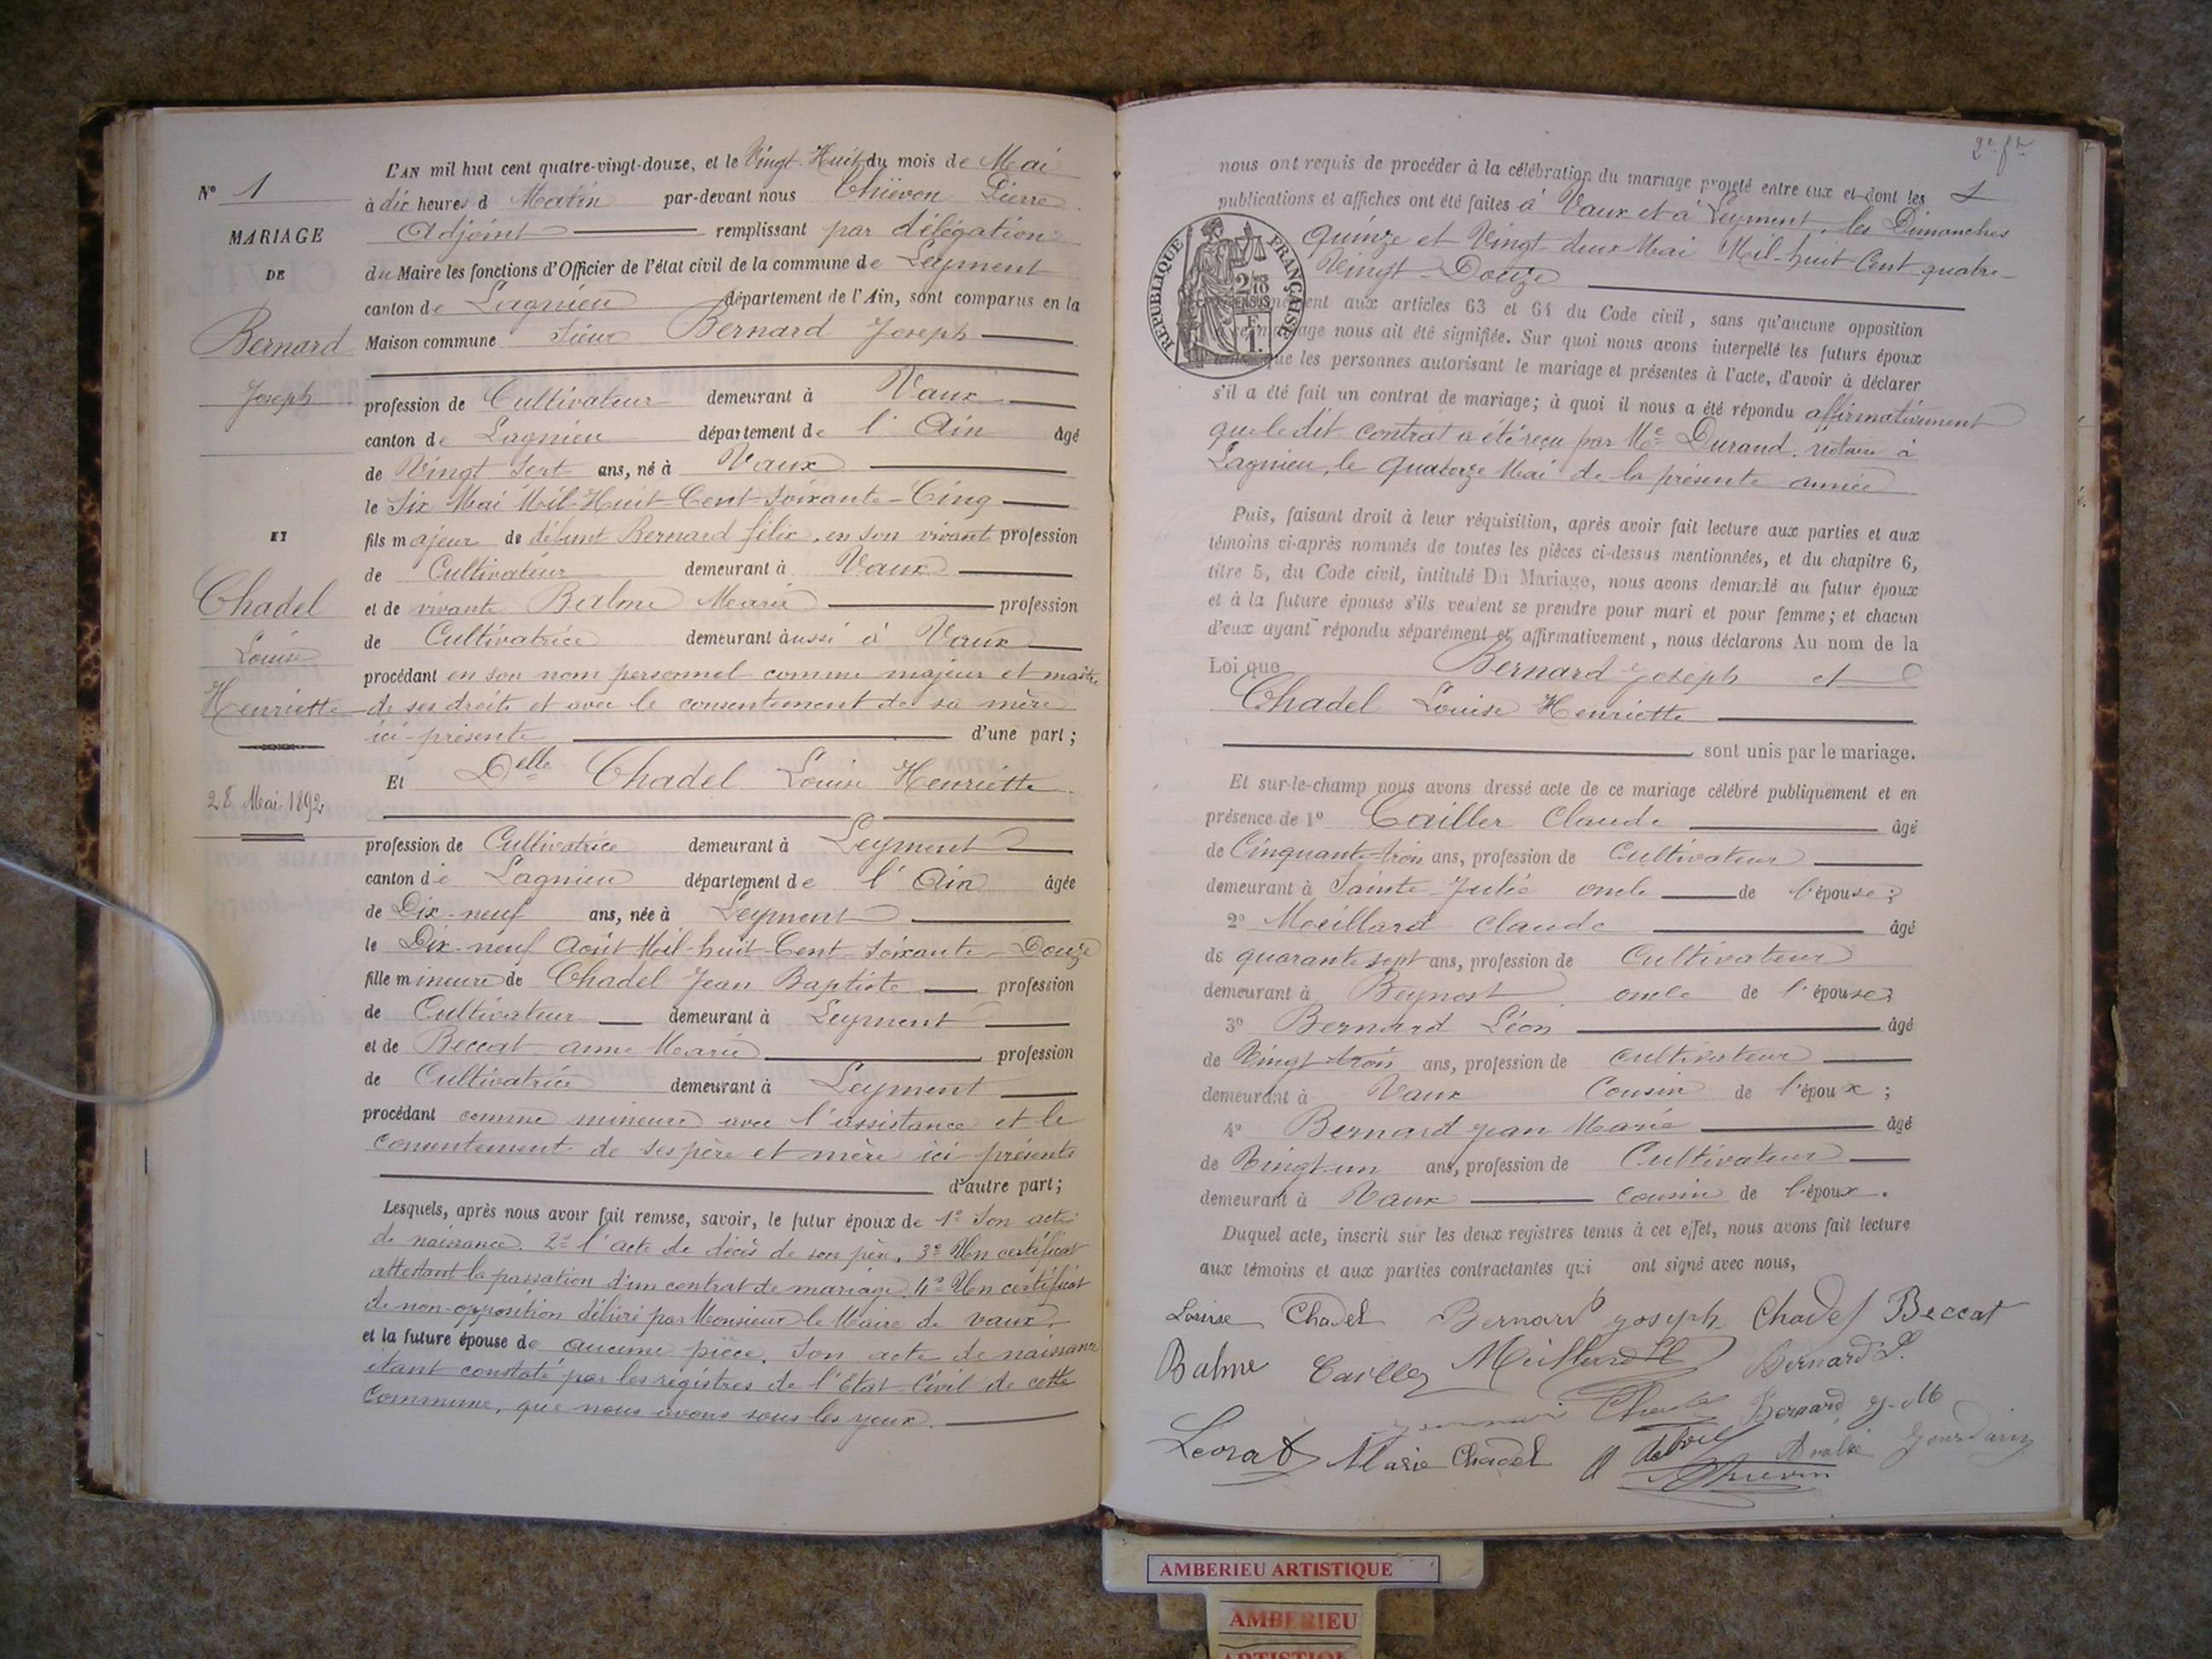 N° 1
MARIAGE
DE
Bernard
Joseph
ET
Chadel
Louise
Henriette
28 Mai 1892
L'AN mil huit cent quatre-vingt-douze, et le Vingt-Huit du mois de Mai
à dix heures d Matin par-devant nous Thiévon Pierre
Adjoint remplissant par délégation
du Maire les fonctions d'Officier de l'état civil de la commune de Leyment
canton de Lagnieu département de l'Ain, sont comparus en la
Maison commune Sieur Bernard Joseph
profession de Cultivateur demeurant à Vaux
canton de Lagnieu département de l'Ain âgé
de Vingt Sept ans, né à Vaux
le Six Mai Mil-Huit-Cent-Soixante-Cinq
fils majeur de défunt Bernard félix, en son vivant profession
de Cultivateur demeurant à Vaux
et de vivante Balme Marie profession
de Cultivatrice demeurant aussi à Vaux
procédant en son nom personnel comme majeur et maître
de ses droits et avec le consentement de sa mère
ici-présente d'une part;
Et Delle Chadel Louise Henriette
profession de Cultivatrice demeurant à Leyment
canton de Lagnieu département de l'Ain âgée
de Dix-neuf ans, née à Leyment
le Dix-neuf Août Mil-huit-Cent-Soixante-Douze
fille mineure de Chadel Jean Baptiste profession
de Cultivateur demeurant à Leyment
et de Beccat anne Marie profession
de Cultivatrice demeurant à Leyment
procédant comme mineure avec l'assistance et le
consentement de ses père et mère ici présents
d'autre part;
Lesquels, après nous avoir fait remise, savoir, le futur époux de 1° Son acte
de naissance. 2° l'acte de décès de son père. 3° Un certificat
attestant la passation d'un contrat de mariage. 4° Un certificat
de non-opposition délivré par Monsieur le Maire de Vaux.
et la future épouse de aucune pièce. Son acte de naissance
étant constaté par les registres de l'Etat-Civil de cette
Commune, que nous avons sous les yeux.
2e ft
nous ont requis de procéder à la célébration du mariage projeté entre eux et dont les
publications et affiches ont été faites à Vaux et à Leyment, les Dimanches
quinze et Vingt-deux Mai Mil-huit Cent quatre-
Vingt-Douze
aux articles 63 et 64 du Code civil, sans qu'aucune opposition
nous ait été signifiée. Sur quoi nous avons interpellé les futurs époux
que les personnes autorisant le mariage et présentes à l'acte, d'avoir à déclarer
s'il a été fait un contrat de mariage; à quoi il nous a été répondu affirmativement
que le dit contrat a été reçu par Me Durand, notaire à
Lagnieu, le quatorze Mai de la présente année
RÉPUBLIQUE FRANÇAISE
2/10 EN SUS
F. 1.
Puis, faisant droit à leur réquisition, après avoir fait lecture aux parties et aux
témoins ci-après nommés de toutes les pièces ci-dessus mentionnées, et du chapitre 6,
titre 5, du Code civil, intitulé Du Mariage, nous avons demandé au futur époux
et à la future épouse s'ils veulent se prendre pour mari et pour femme; et chacun
d'eux ayant répondu séparément et affirmativement, nous déclarons Au nom de la
Loi que Bernard Joseph et
Chadel Louise Henriette
sont unis par le mariage.
Et sur-le-champ nous avons dressé acte de ce mariage célébré publiquement et en
présence de 1° Cailler Claude âgé
de Cinquante-trois ans, profession de Cultivateur
demeurant à Sainte-Julie oncle de l'épouse;
2° Meillard Claude âgé
de quarante sept ans, profession de Cultivateur
demeurant à Beynost oncle de l'épouse;
3° Bernard Léon âgé
de Vingt-trois ans, profession de Cultivateur
demeurant à Vaux Cousin de l'époux;
4° Bernard Jean Marie âgé
de Vingt-un ans, profession de Cultivateur
demeurant à Vaux cousin de l'époux.
Duquel acte, inscrit sur les deux registres tenus à cet effet, nous avons fait lecture
aux témoins et aux parties contractantes qui ont signé avec nous,
Louise Chadel Bernard Joseph Chadel Beccat
Balme Cailler Meillard Cl Bernard L.
Bernard J-M
Leorat Marie Chadel Thievon
AMBERIEU ARTISTIQUE
AMBERIEU
ARTISTIQUE